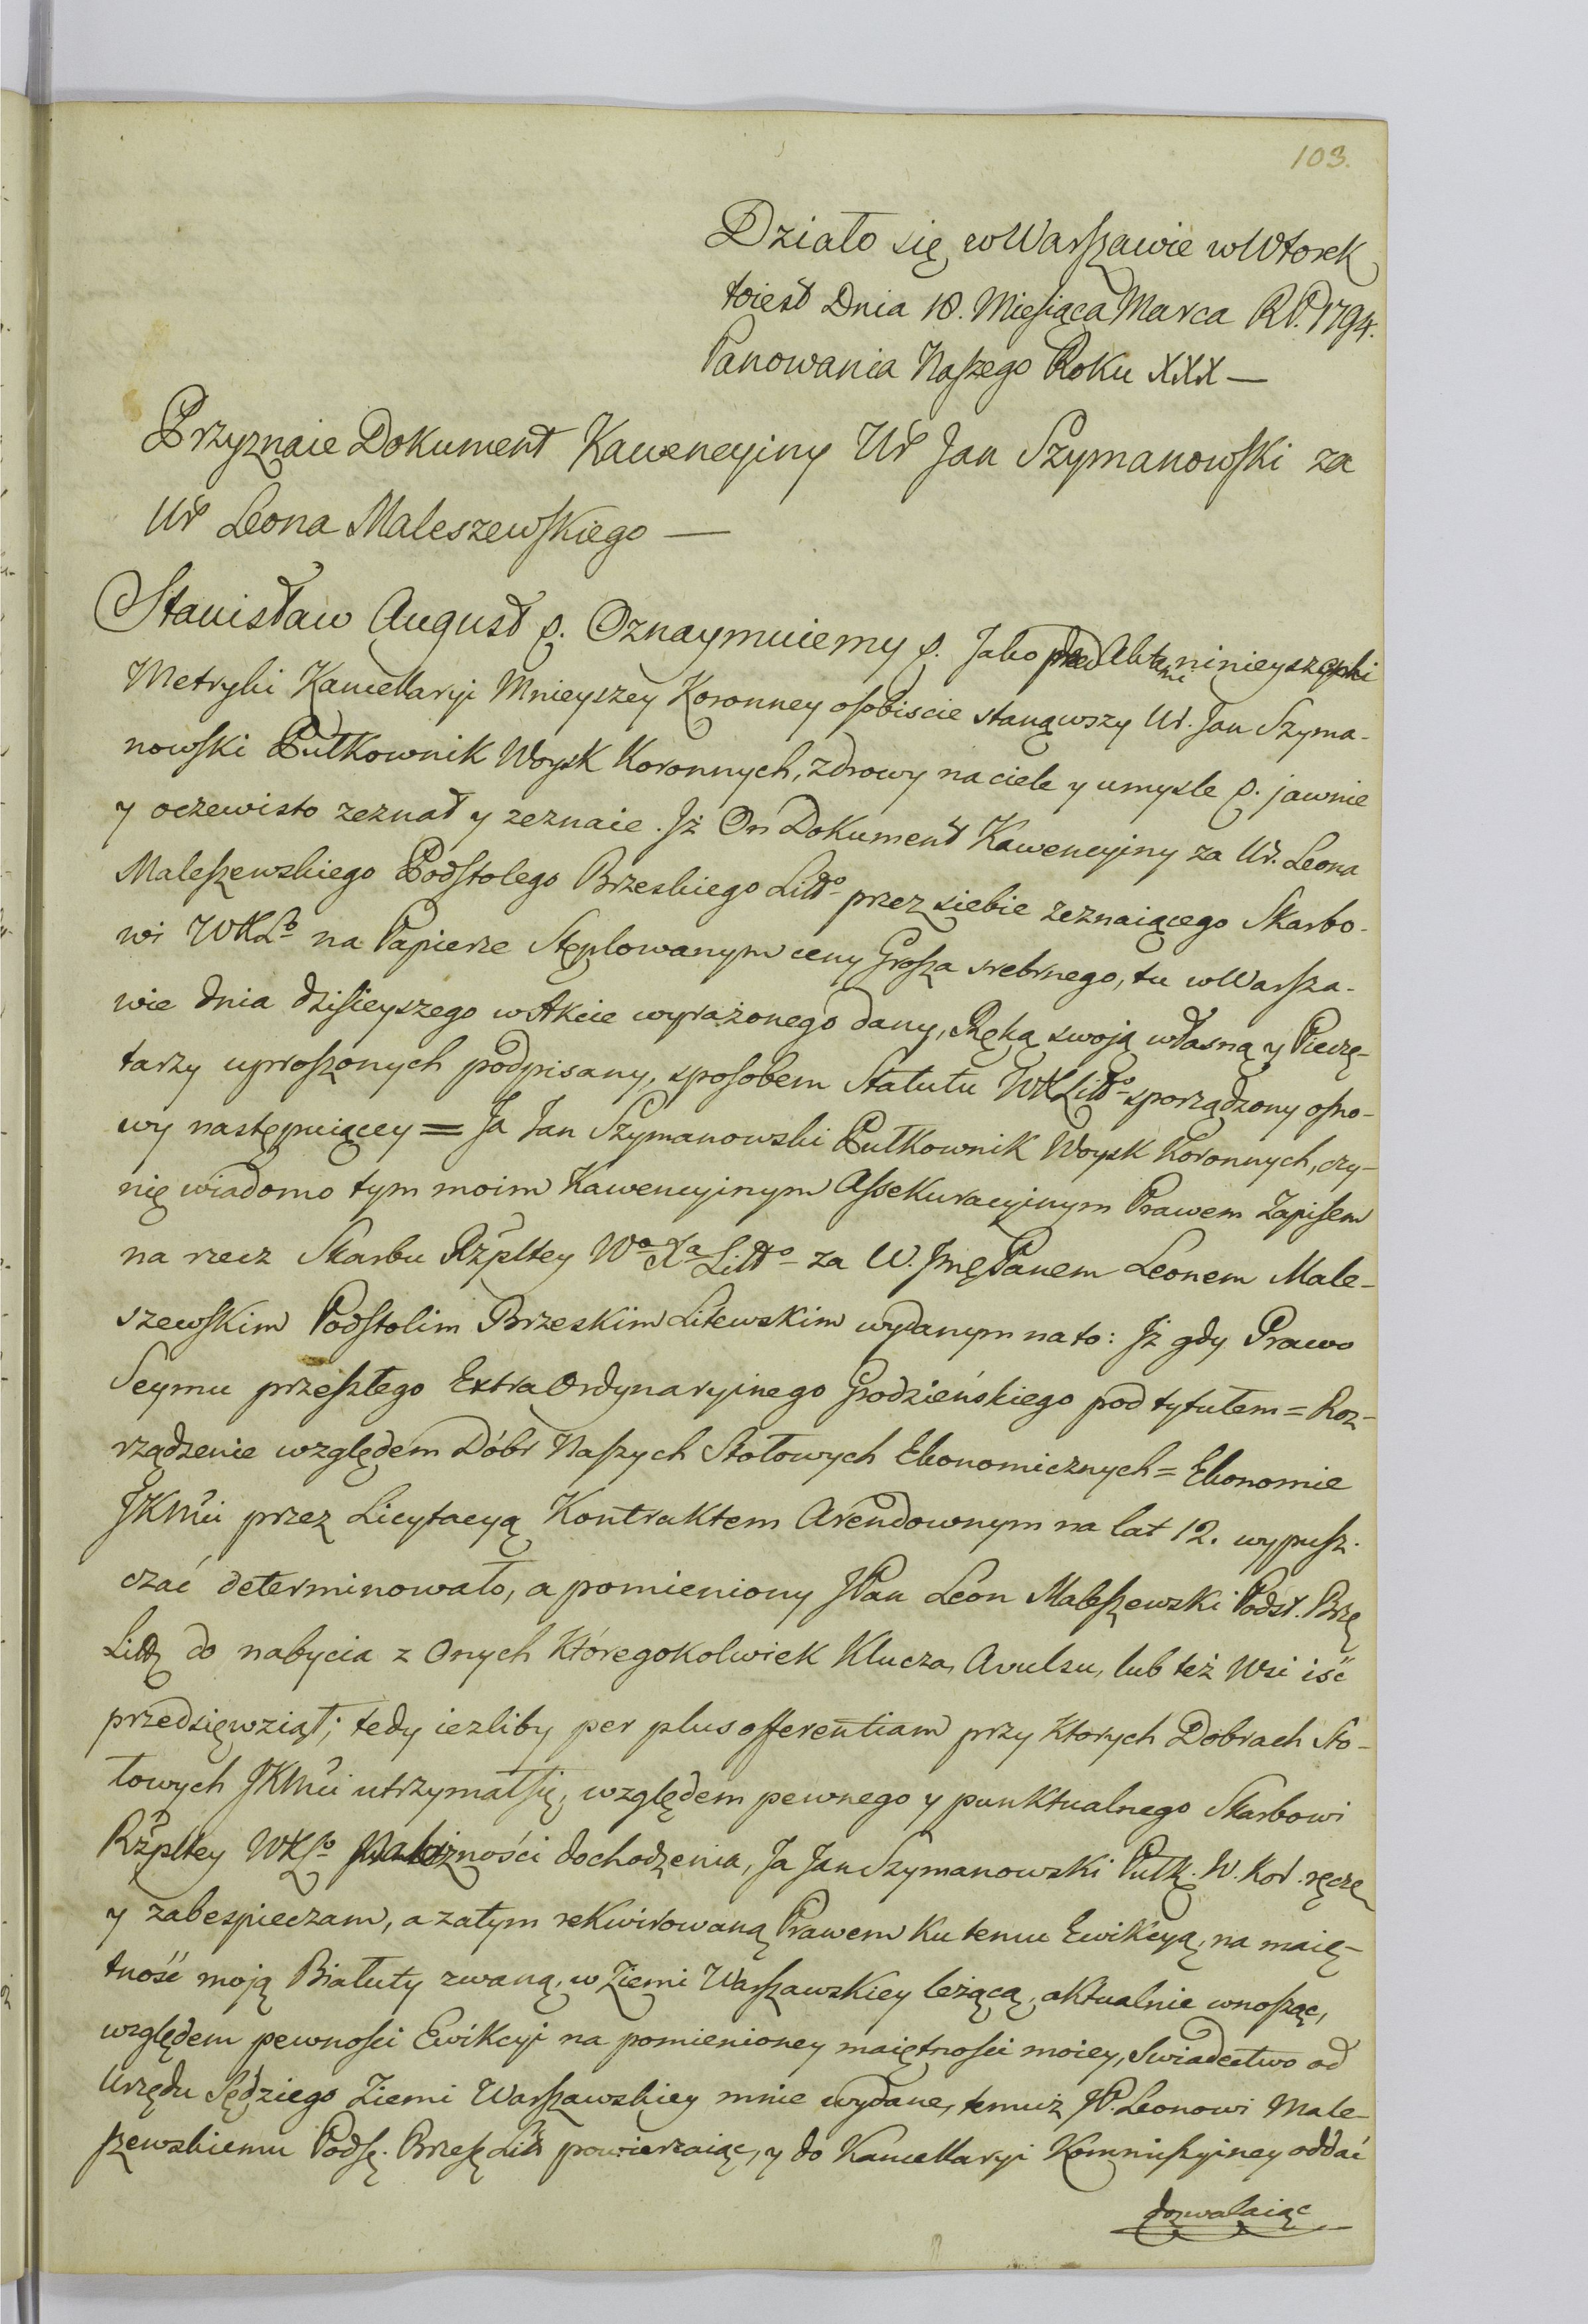 103.
Działo się w Warszawie w Wtorek
toiest Dnia 18. Miesiąca Marca RP. 1794.
Panowania Naszego Roku XXX —
Przyznaie Dokument Kawencyiny Ur Jan Szymanowski za
Ur Leona Maleszewskiego —
Stanisław August p. Oznaymuiemy p. Jako przed Aktami ninieyszemi
Metryki Kancellaryi Mnieyszey Koronney osobiscie stanąwszy Ur. Jan Szyma-
nowski Pułkownik Woysk Koronnych, zdrowy na ciele y umysle p. jawnie
y oczewisto zeznał y zeznaie. Jż On Dokument Kawencyiny za Ur. Leona
Maleszewskiego Podstolego Brzeskiego Litto przez siebie zeznaiącego Skarbo-
wi WXLo na Papierze Stęplowanym ceny Grosza srebrnego, tu w Warsza-
wie dnia dzisieyszego w Akcie wyrażonego dany, Ręką swoją własną y Pieczę-
tarzy uproszonych podpisany, sposobem Statutu WXLitto sporządzony osno-
wy następuiącey = Ja Jan Szymanowski Pułkownik Woysk Koronnych, czy-
nię wiadomo tym moim Kawencyinym Assekuracyinym Prawem Zapisem
na rzecz Skarbu Rzpltey Wo Xa Litto za W. Jmę Panem Leonem Male-
szewskim Podstolim Brzeskim Litewskim wydanym na to: Jż gdy Prawo
Seymu przeszłego Extra Ordynaryinego Grodzieńskiego pod tytułem = Roz-
rządzenie względem Dóbr Naszych Stołowych Ekonomicznych = Ekonomie
JKMci przez Licytacyą Kontraktem Arendownym na lat 12. wypusz-
czać determinowało, a pomieniony JPan Leon Maleszewski Podst. Brzę
Litt do nabycia z Onych Któregokolwiek Klucza, Avulsu, lub też Wsi iść
przedsięwziął; tedy iezliby per plus offerentiam przy Ktorych Dobrach Sto-
łowych JKMci utrzymał się, względem pewnego y punktualnego Skarbowi
Rzpltey WXLo należności dochodzenia, Ja Jan Szymanowski Pułk. W. Kor. ręczę
y zabespieczam, a zatym rekwirowaną Prawem Ku temu Ewikcyą, na maię-
tność moją Białuty zwaną, w Ziemi Warszawskiey leżącą, aktualnie wnosząc,
względem pewności Ewikcyi na pomienioney maiętności moiey, Swiadectwo od
Urzędu Sędziego Ziemi Warszawskiey mnie wydane, temuż JP. Leonowi Male-
szewskiemu Pods. Brzes Litt powierzaiąc, y do Kancellaryi Kommissyiney oddać
dozwalaiąc